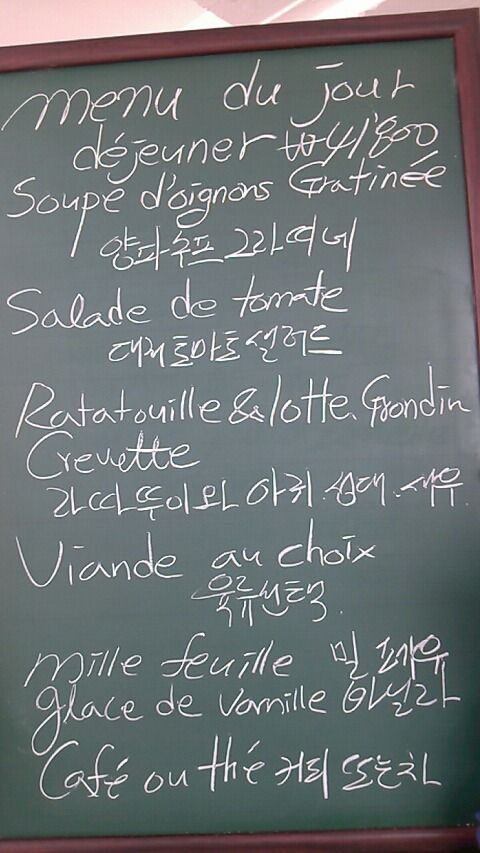 menu du jour
déjeuner ₩41'800
Soupe d'oignons Gratinée
양파수프 그라띠네
Salade de tomate
대저토마토샐러드
Ratatouille & lotte. Grondin
Crevette
라따뚜이와 아귀.성대.새우.
Viande au choix
육류선택.
mille feuille 밀푀유
glace de vanille 바닐라
Café ou thé 커피 또는 차